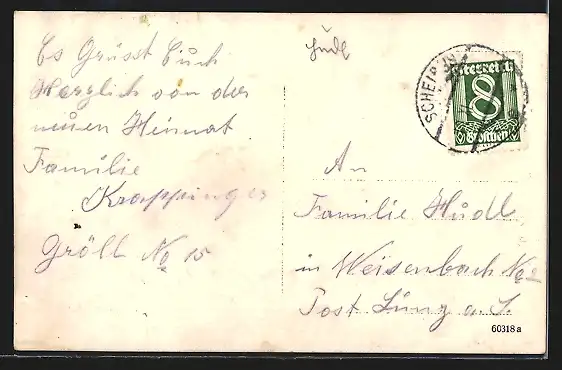 Es Grüsst Euch
Herzlich von der
neuen Heimat
Familie
Krappinger
Gröll No 15
Hudl
SCHEIB
Österreich
8
Groschen
An
Familie Hudl
in Weisenbach No 2
Post
60318 a